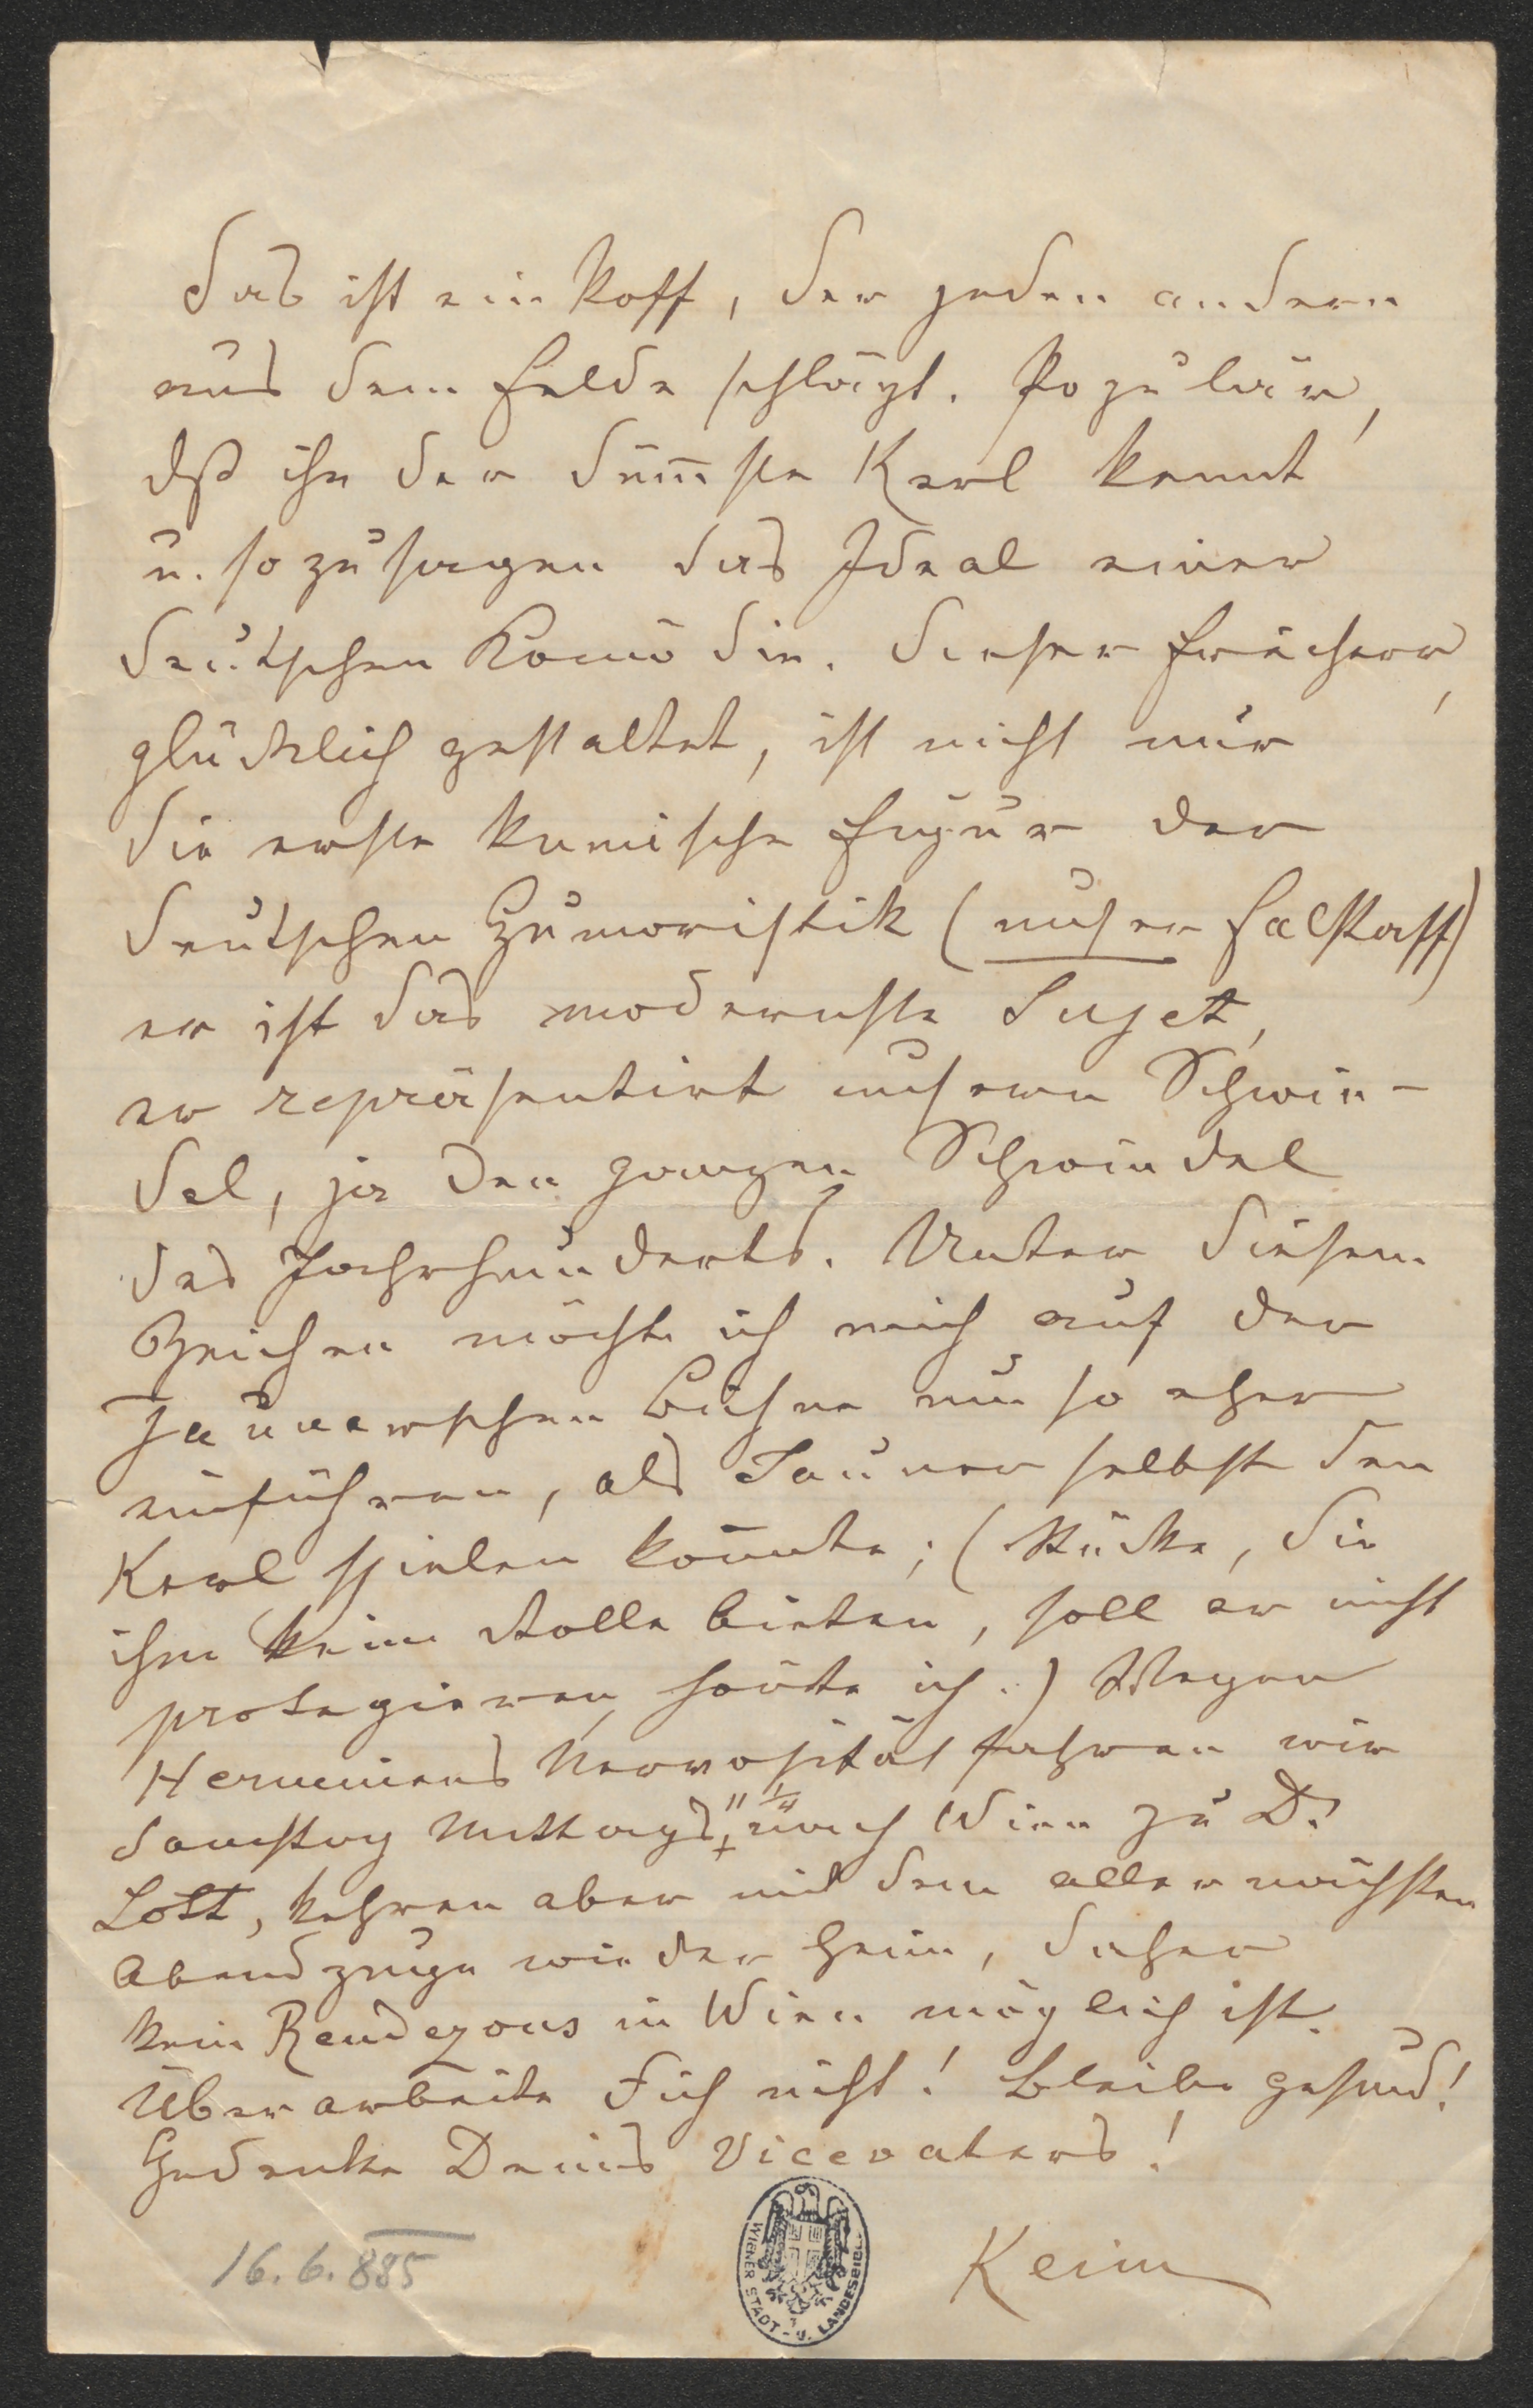 das ist ein Stoff, der jeden andern
aus dem Felde schlägt. Populär,
dß ihn der dum̄ste Kerl kennt
u. so zu sagen das Ideal einer
deutschen Komödie. Dieser Freiherr,
glücklich gestaltet, ist nicht nur
die erste komische Figur der
deutschen Humoristik (unser Falstaff)
er ist das modernste Sujet,
er repräsentirt unsern Schwin-
del, ja den ganzen Schwindel
des Jahrhunderts. Unter diesem
Zeichen möchte ich mich auf der
Jaunerschen Bühne um so eher
einführen, als Jauner selbst den
Kerl spielen könnte; (Stücke, die
ihm keine Rolle bieten, soll er nicht
protegieren, hörte ich.) Wegen
Herminens Nervosität fahren wir
Samstag Mittags, nach Wien zu D.
Lott, kehren aber mit dem allernächsten
Abendzuge wieder heim, daher
kein Rendezvous in Wien möglich ist.
Überarbeite Dich nicht! Bleibe gesund!
Gedenke Deines Vicevaters!
Keim
16.6.885
WIENER STADT- U. LANDESBIBL.